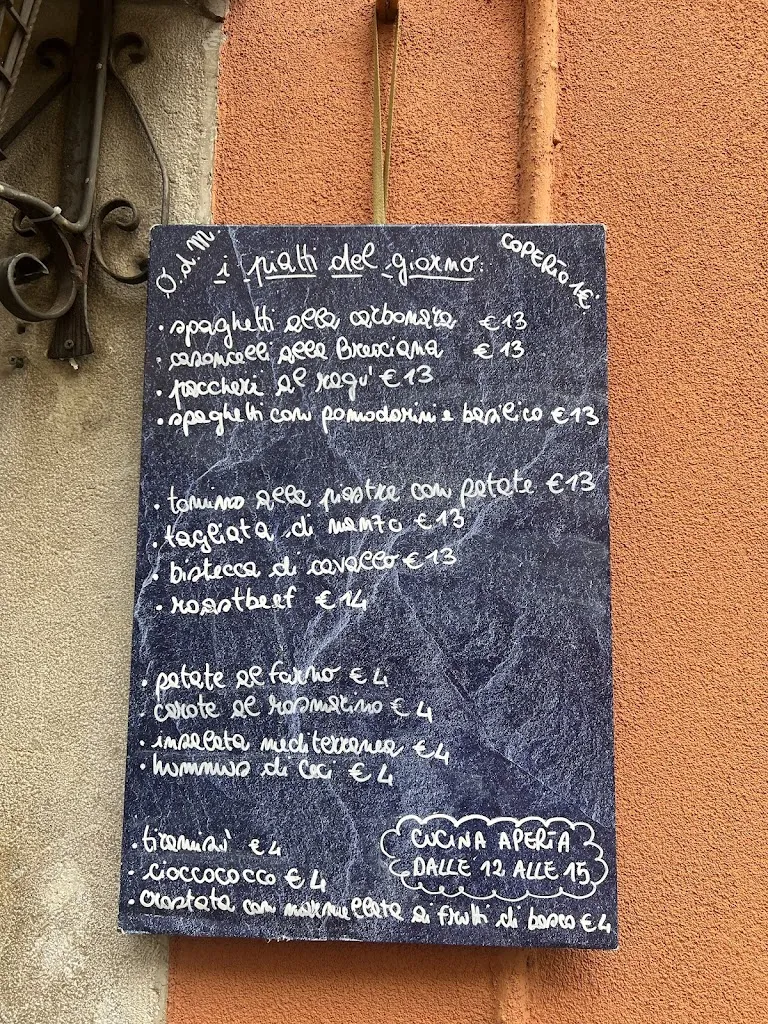 O.d.M.
i piatti del giorno:
COPERTO 1€
• spaghetti alla carbonara €13
• casoncelli alla Bresciana €13
• paccheri al ragu' €13
• spaghetti con pomodorini e basilico €13
• tomino alla piastra con patate €13
• tagliata di manzo €13
• bistecca di cavallo €13
• roastbeef €14
• patate al forno €4
• carote al rosmarino €4
• insalata mediterranea €4
• hummus di ceci €4
• tiramisu' €4
• cioccococco €4
• crostata con marmellata ai frutti di bosco €4
CUCINA APERTA
DALLE 12 ALLE 15